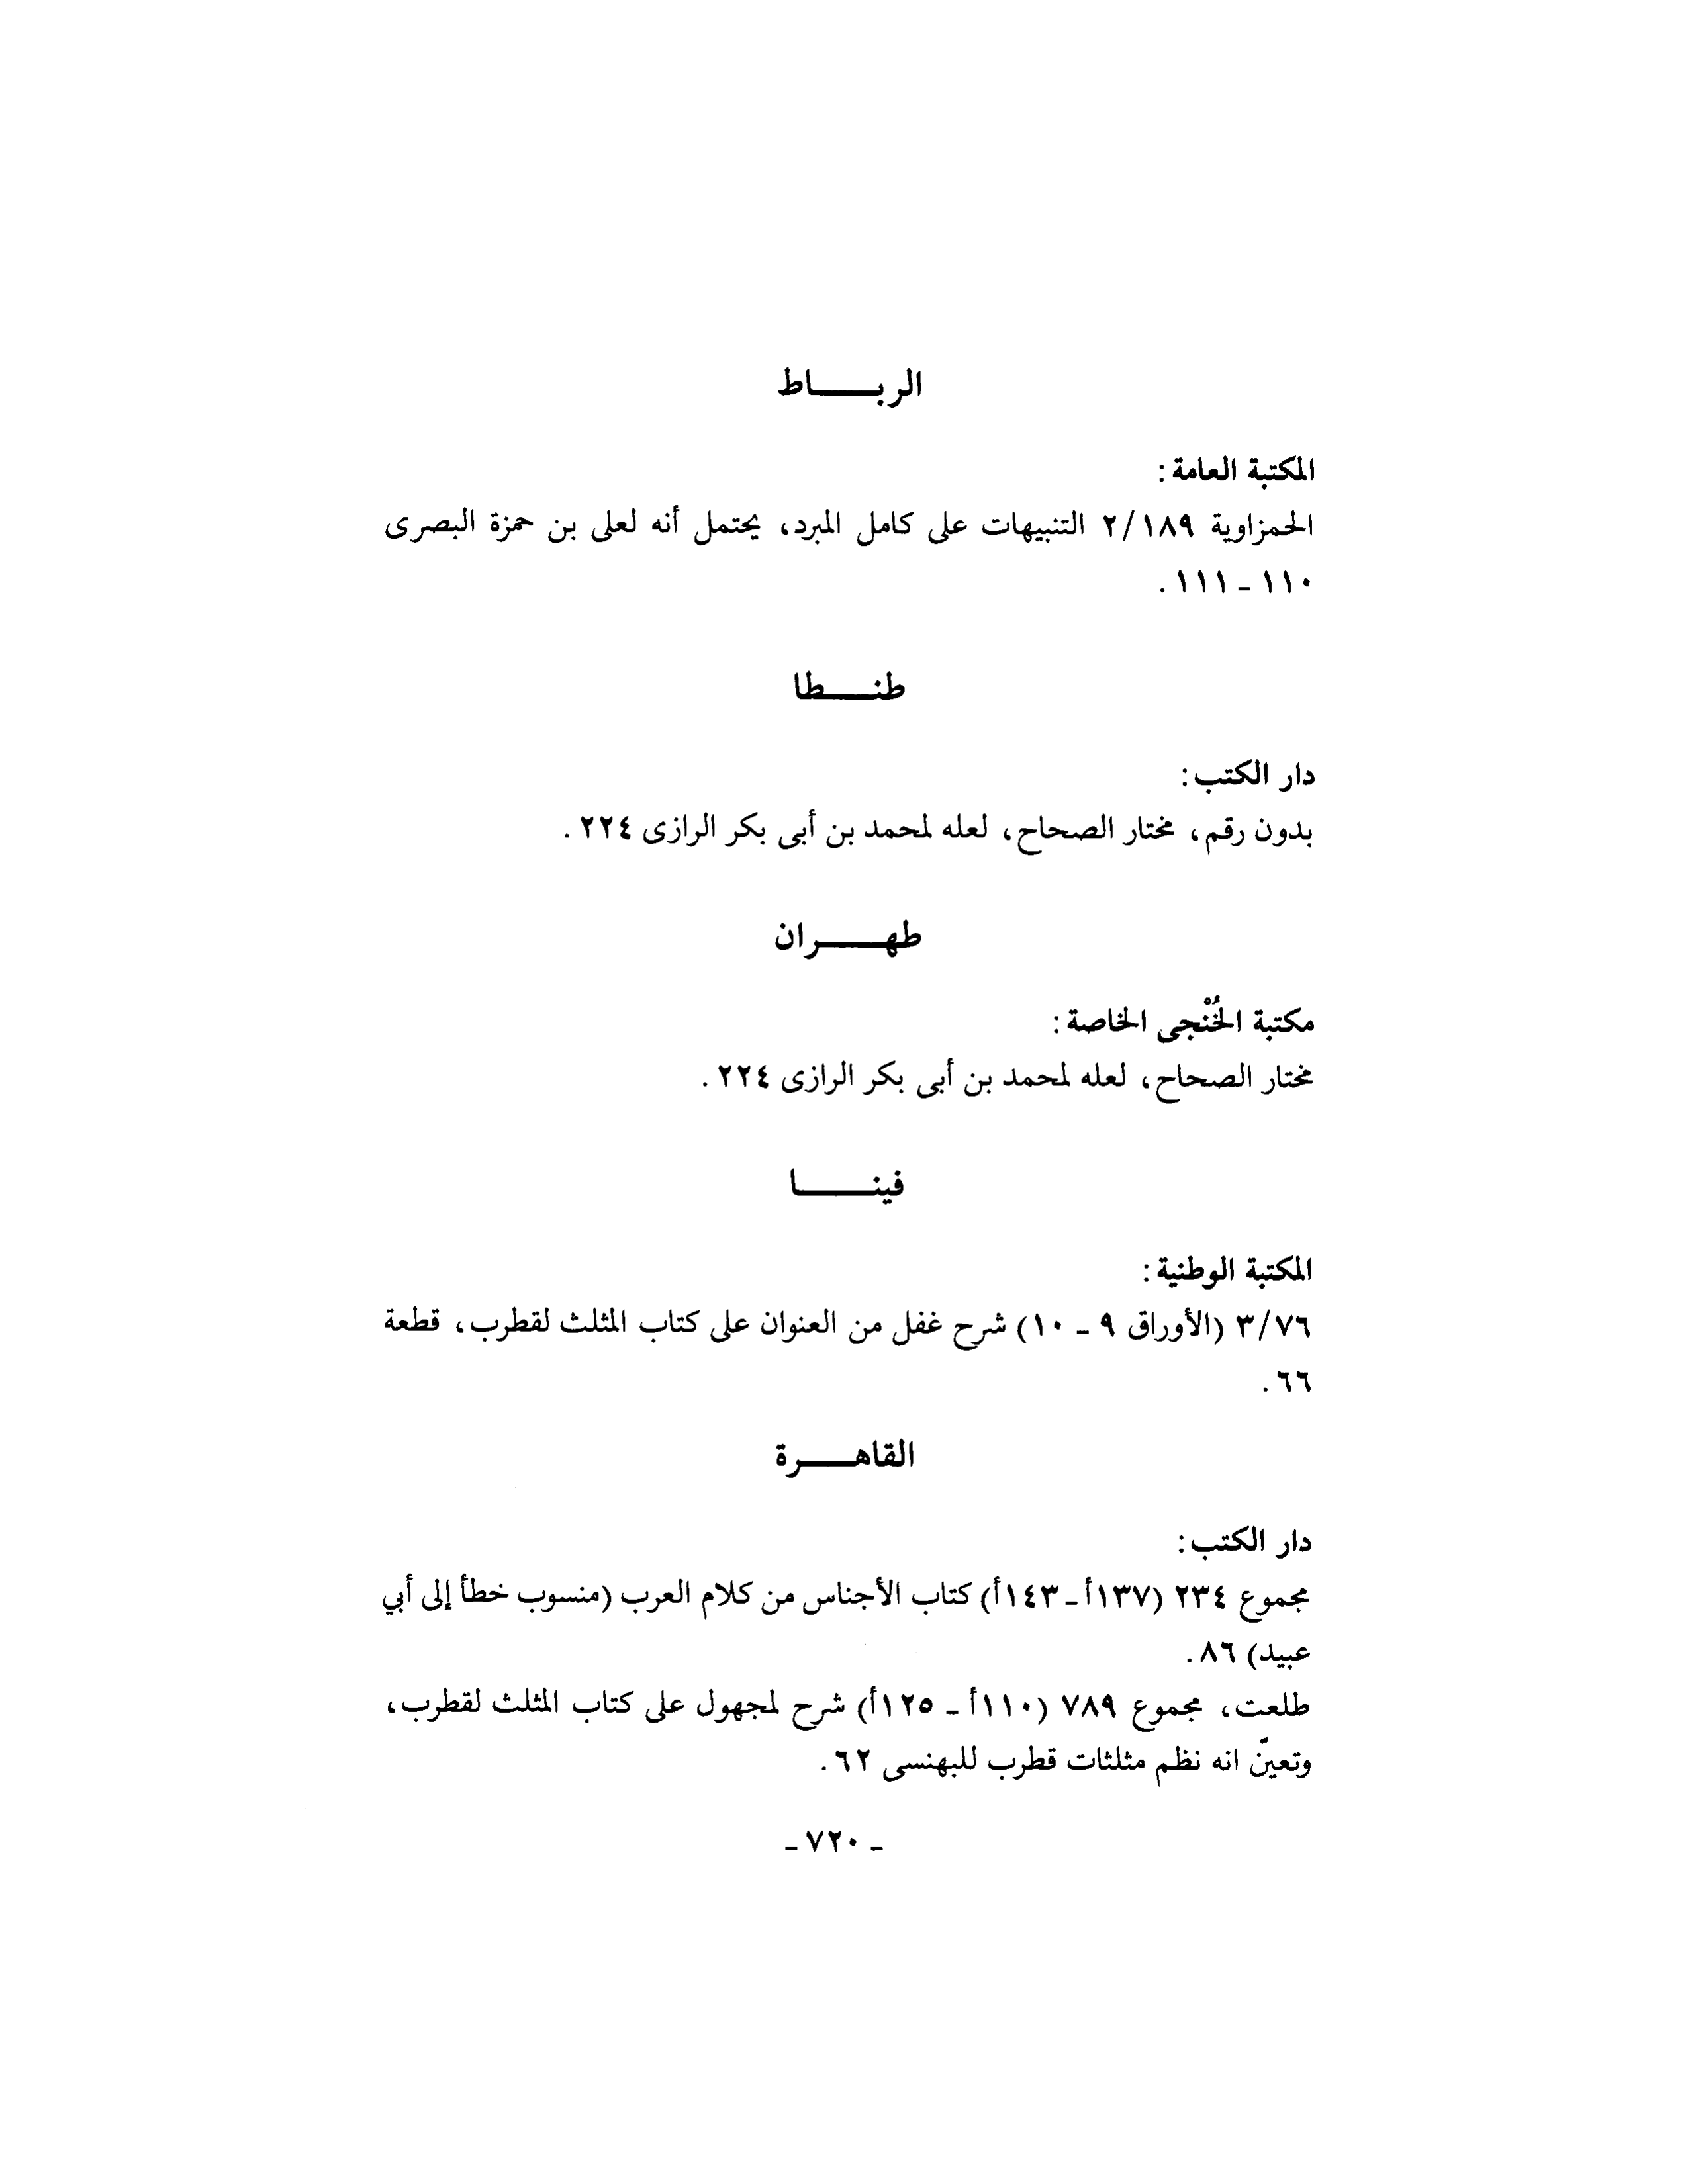 الربـــــاط
المكتبة العامة:
الحمزاوية ٢/١٨٩ التنبيهات على كامل المبرد، يحتمل أنه لعلى بن حمزة البصرى
١١٠ ـ ١١١.
طنـــطا
دار الكتب:
بدون رقم، مختار الصحاح، لعله لمحمد بن أبى بكر الرازى ٢٢٤.
طهـــــران
مكتبة الخُنْجى الخاصة:
مختار الصحاح، لعله لمحمد بن أبى بكر الرازى ٢٢٤.
فينـــــا
المكتبة الوطنية:
٣/٧٦ (الأوراق ٩ ـ ١٠) شرح غفل من العنوان على كتاب المثلث لقطرب، قطعة
٦٦.
القاهـــــرة
دار الكتب:
مجموع ٢٣٤ (١٣٧أ ـ ١٤٣أ) كتاب الأجناس من كلام العرب (منسوب خطأ إلى أبي
عبيد) ٨٦.
طلعت، مجموع ٧٨٩ (١١٠أ ـ ١٢٥أ) شرح لمجهول على كتاب المثلث لقطرب،
وتعينّ انه نظم مثلثات قطرب للبهنسى ٦٢.
ـ ٧٢٠ ـ